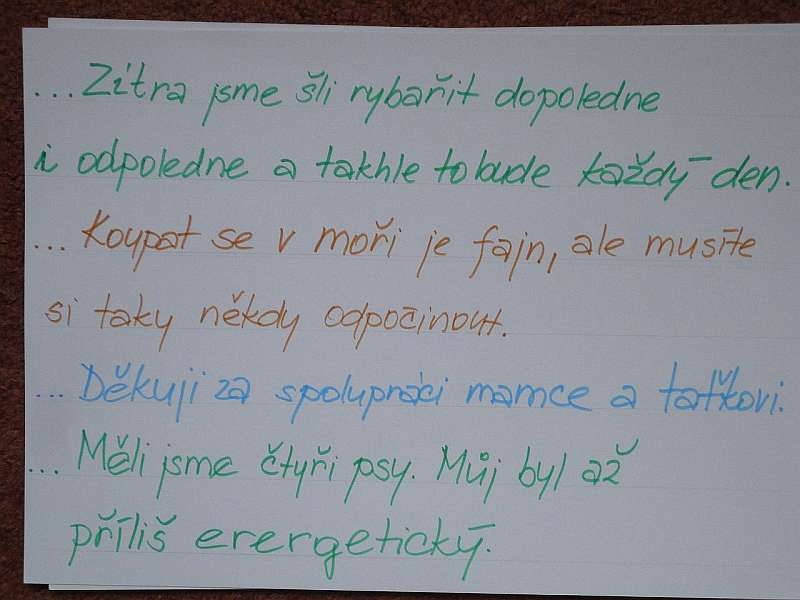 ...Zítra jsme šli rybařit dopoledne
i odpoledne a takhle to bude každý den.
...Koupat se v moři je fajn, ale musíte
si taky někdy odpočinout.
...Děkuji za spolupráci mamce a taťkovi.
...Měli jsme čtyři psy. Můj byl až
příliš erergetický.